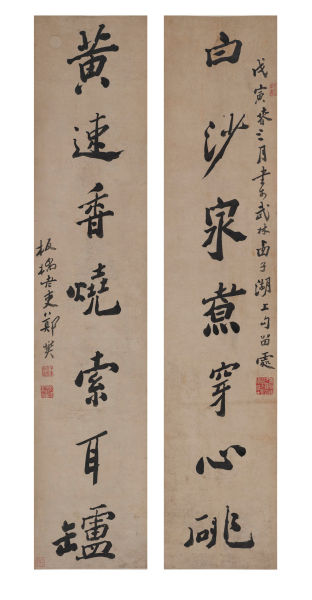 戊寅春三月书于武林西子湖上勾留處
白沙泉煮穿心硯
黄速香燒索耳鑪
板橋老吏鄭燮